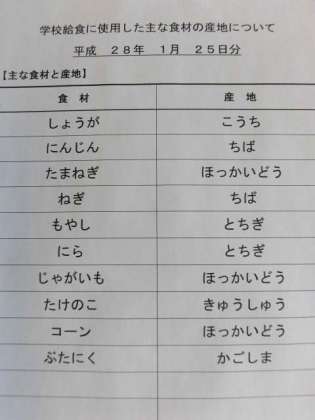 学校給食に使用した主な食材の産地について
平成 28年 1月 25日分
【主な食材と産地】
食 材 産 地
しょうが こうち
にんじん ちば
たまねぎ ほっかいどう
ねぎ ちば
もやし とちぎ
にら とちぎ
じゃがいも ほっかいどう
たけのこ きゅうしゅう
コーン ほっかいどう
ぶたにく かごしま